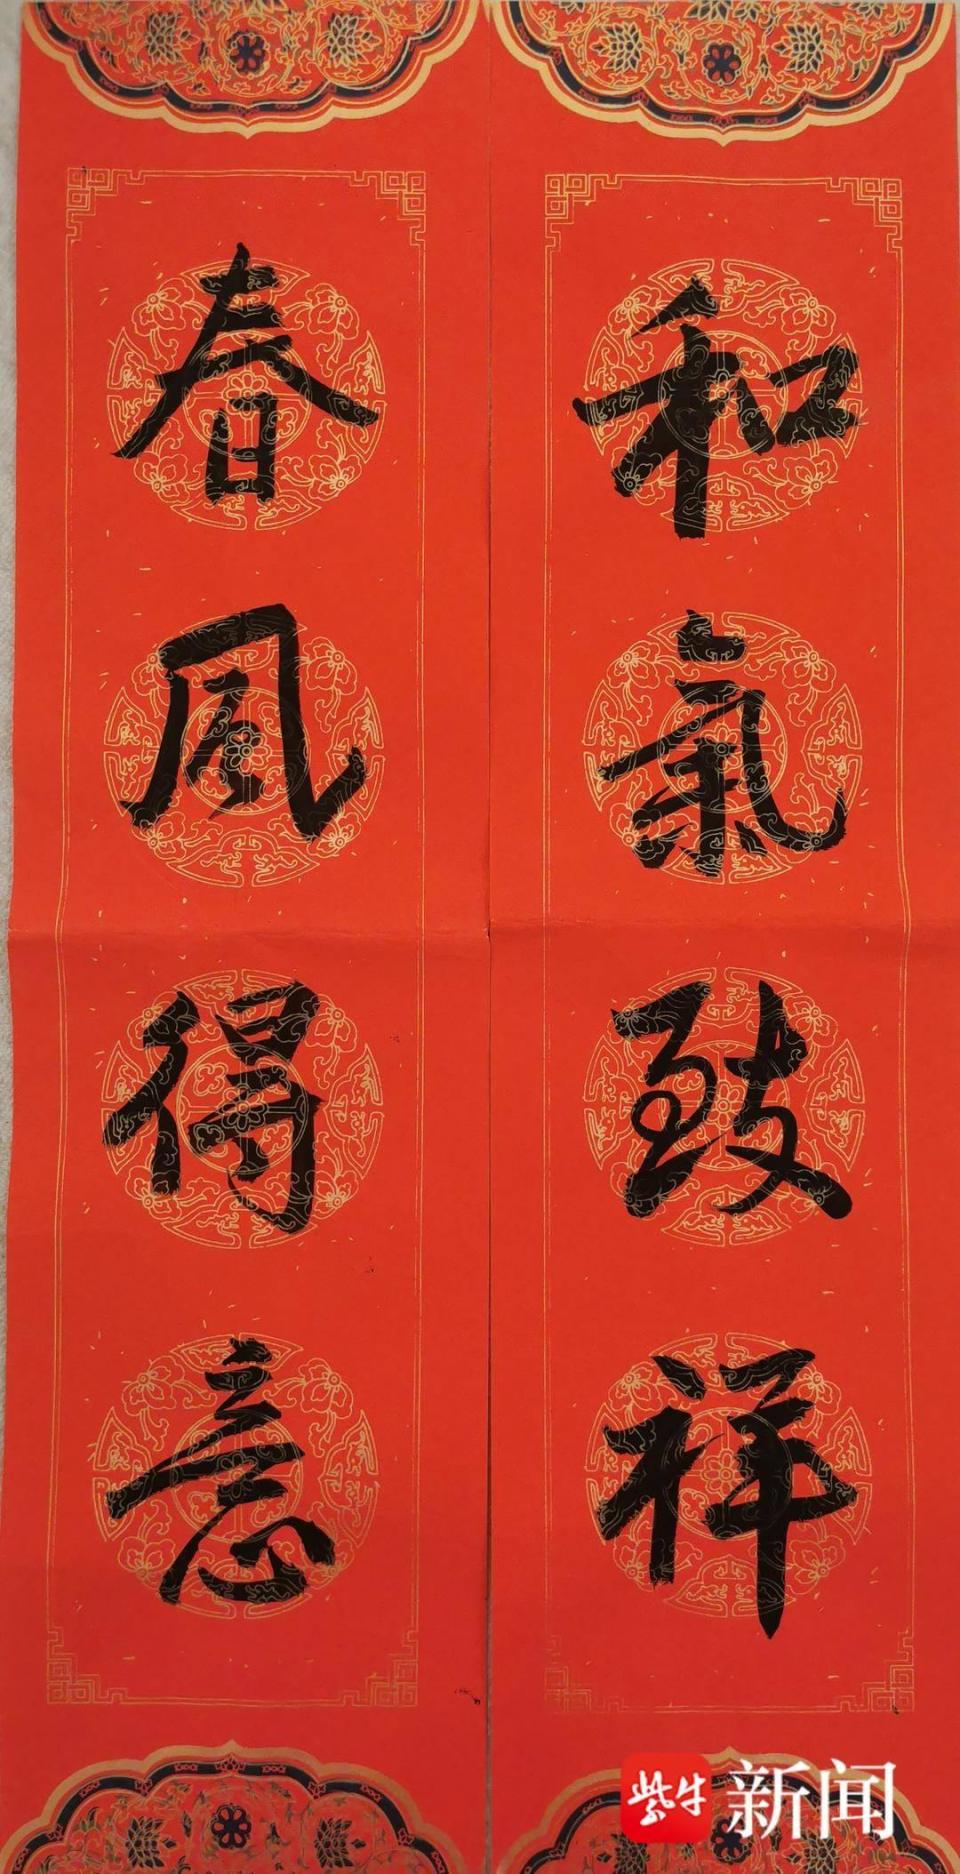 和氣致祥
春风得意
紫牛新闻